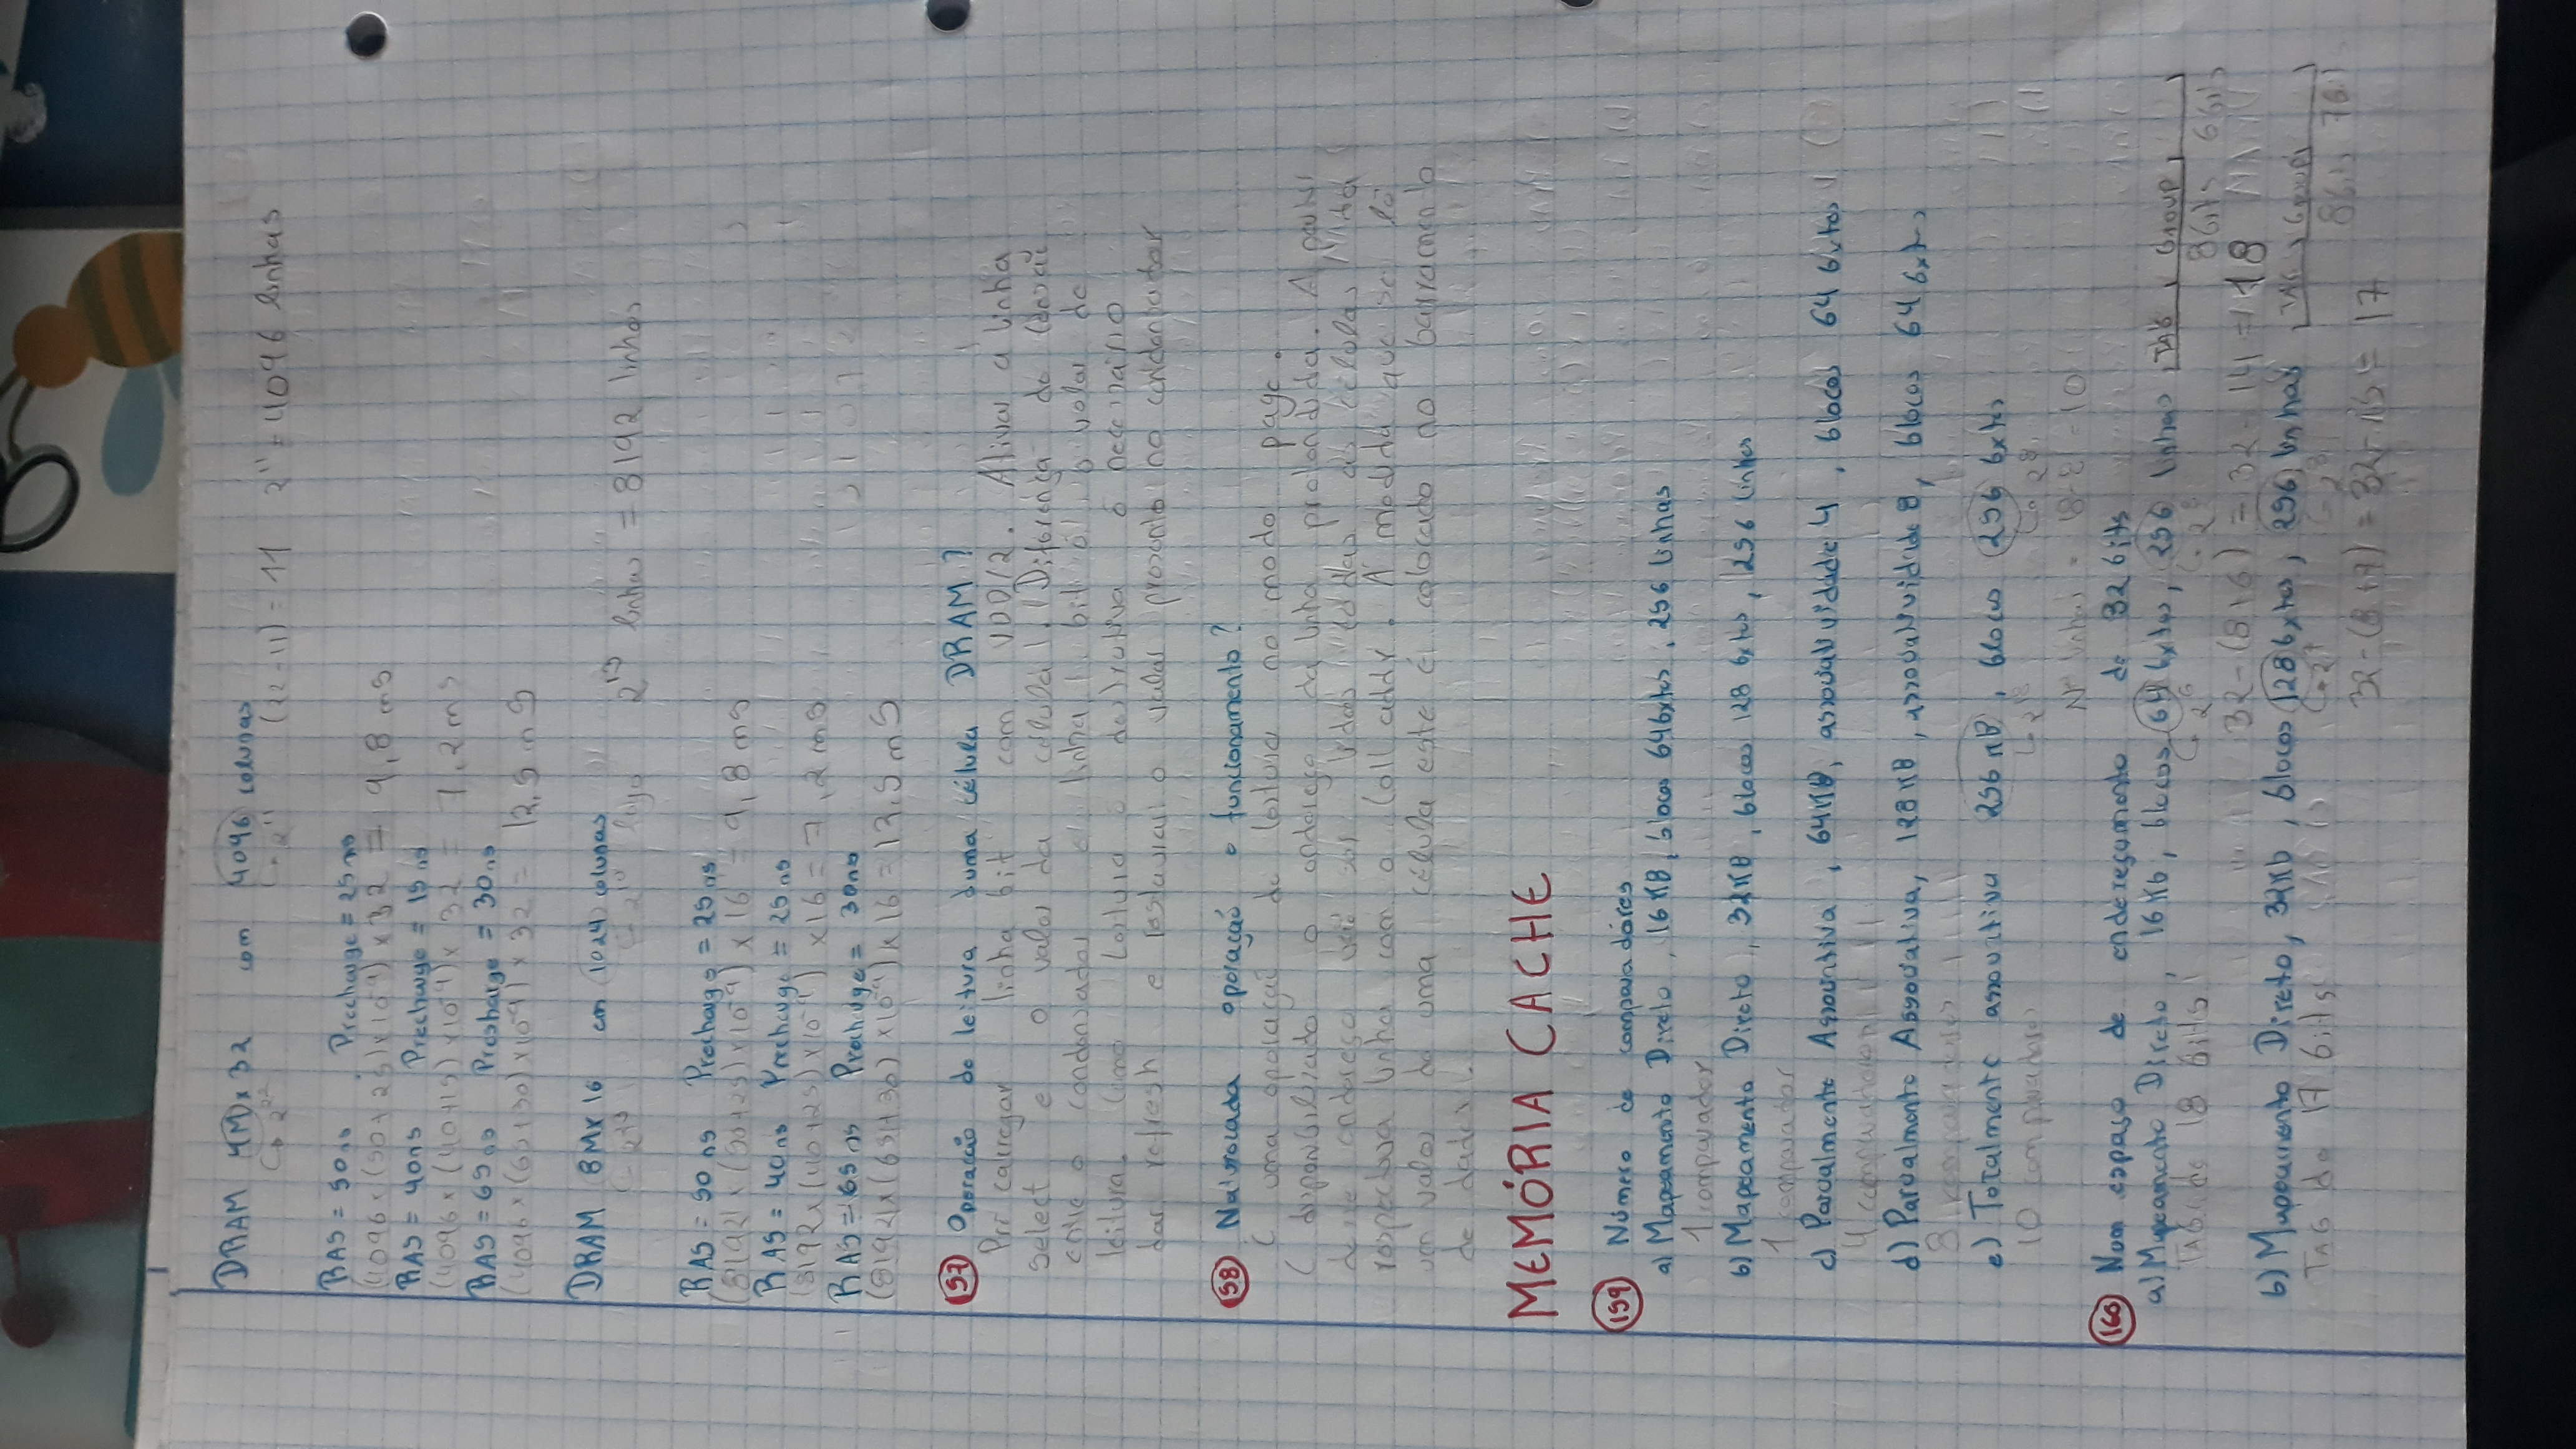 DRAM 4M x 32 com 4096 colunas
↳ 2²² ↳ 2¹¹ (22-11) = 11 2¹¹ = 4096 linhas
RAS = 50ns Precharge = 25ns
(4096 × (50+25)×10⁻⁹) × 32 = 9,8 ms
RAS = 40ns Precharge = 15ns
(4096 × (40+15)×10⁻⁹) × 32 = 7,2 ms
RAS = 65ns Precharge = 30ns
(4096 × (65+30)×10⁻⁹) × 32 = 12,5 mS
DRAM 8M x 16 com 1024 colunas
↳ 2¹⁰ logo 2¹³ linhas = 8192 linhas
RAS = 50ns Precharge = 25ns
(8192 × (50+25)×10⁻⁹) × 16 = 9,8 ms
RAS = 40ns Precharge = 25ns
(8192 × (40+25)×10⁻⁹) × 16 = 7,2 ms
RAS = 65ns Precharge = 30ns
(8192 × (65+30)×10⁻⁹) × 16 = 12,5 mS
157 Operação de leitura duma célula DRAM?
Pré carregar linha bit com VDD/2. Ativar a linha
select e o valor da célula. Diferença de
entre o condensador e linha bit é o valor de
leitura. Como leitura é destrutiva é necessário
dar refresh e restaurar o valor presente no condensador
158 operação e funcionamento?
É uma operação de leitura no modo page.
É disponibilizado o endereço da linha pretendida. A partir
desse endereço vão ser lidas todas as células da
respectiva linha com o Coll addr. À medida que se lê
um valor de uma célula este é colocado no barramento
de dados.
MEMÓRIA CACHE
159 Número de comparadores
a) Mapeamento Direto, 16 KB, blocos 64 bytes, 256 linhas
1 comparador
b) Mapeamento Direto, 32KB, blocos 128 bytes, 256 linhas
1 comparador
c) Parcialmente Associativa, 64KB, associatividade 4, blocos 64 bytes
4 comparadores
d) Parcialmente Associativa, 128KB, associatividade 8, blocos 64 bytes
8 comparadores
e) Totalmente associativa 256 KB, blocos 256 bytes
10 comparadores ↳ 2¹⁸ ↳ 2⁸
Nº linhas = 18-8 = 10
160 Num espaço de endereçamento de 32 bits
a) Mapeamento Direto, 16Kb, blocos 64 bytes, 256 linhas TAG Group
TAG de 18 bits ↳ 2⁶ ↳ 2⁸ 8bits 6bits
32-(8+6) = 32-14 = 18
b) Mapeamento Direto, 32Kb, blocos 128 bytes, 256 linhas TAG Group
TAG de 17 bits ↳ 2⁷ ↳ 2⁸ 8bits 7bits
32-(8+7) = 32-15 = 17